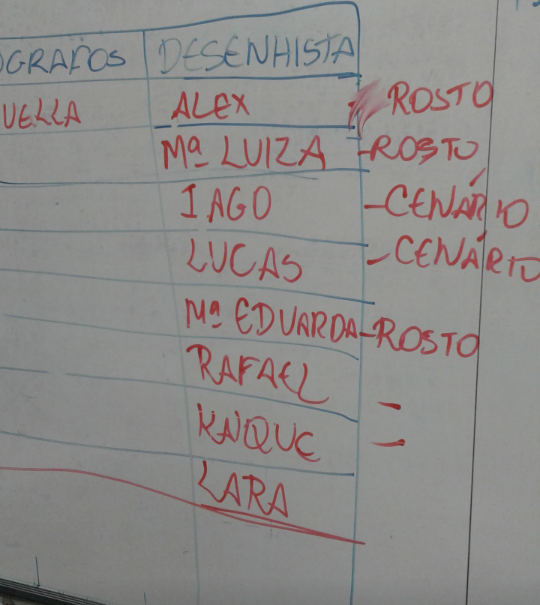 OGRAFOS DESENHISTA
UELLA ALEX - ROSTO
Mª LUIZA - ROSTO
IAGO - CENÁRIO
LUCAS - CENÁRIO
Mª EDUARDA - ROSTO
RAFAEL -
KAIQUE -
LARA